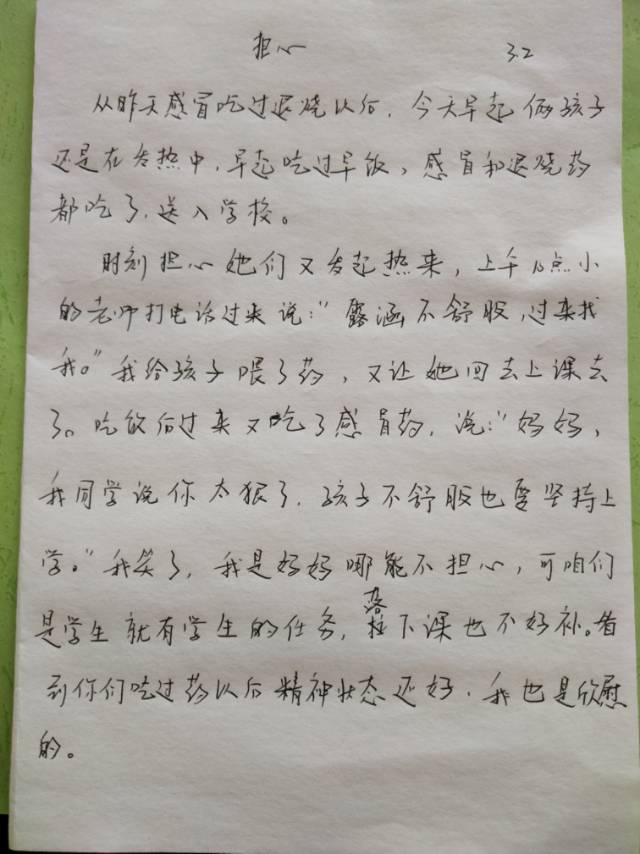 担心 3.2
从昨天感冒吃过退烧以后，今天早起俩孩子
还是在发热中，早起吃过早饭，感冒和退烧药
都吃了，送入学校。
时刻担心她们又发起热来，上午10点小
的老师打电话过来说：“露涵不舒服，过来找
我。”我给孩子喂了药，又让她回去上课去
了。吃饭后过来又吃了感冒药，说：“妈妈，
我同学说你太狠了，孩子不舒服也要坚持上
学。”我笑了，我是妈妈哪能不担心，可咱们
是学生就有学生的任务，落下课也不好补。看
到你们吃过药以后精神状态还好，我也是欣慰
的。